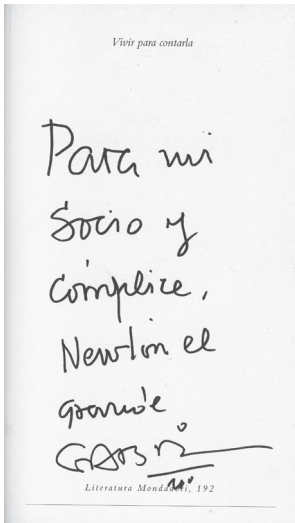 Vivir para contarla
Para mi
Socio y
cómplice,
Newton el
grande
GABO
Literatura Mondadori, 192